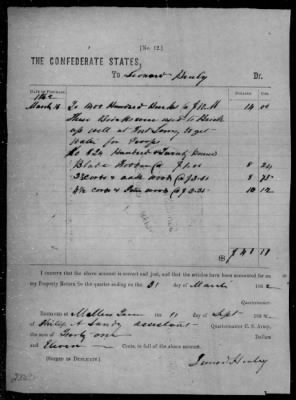 [No. 12.]
THE CONFEDERATE STATES,
To Leonard Henly Dr.
DATE OF PURCHASE.
1862
March 16 To 1400 Hundred Bricks @ $10. M 14 00
These Bricks were used to Brick
up well at Fort to get
water for Troops
To 824 Hundred & Twenty Pound
Blade Fodder @ $1.00 8 24
cords oak wood @ $2.50 8 75
4½ cords Pine wood @ $2.25 10 12
$ 41 11
I certify that the above account is correct and just, and that the articles have been accounted for on
my Property Return for the quarter ending on the 31 day of March 1862
Quartermaster.
RECEIVED at on 11 day of Sept 1862
of Philip A Sandy assistant Quartermaster C. S. Army,
the sum of Forty one Dollars
and Eleven Cents, in full of the above account.
(SIGNED IN DUPLICATE.) Leonard Henley